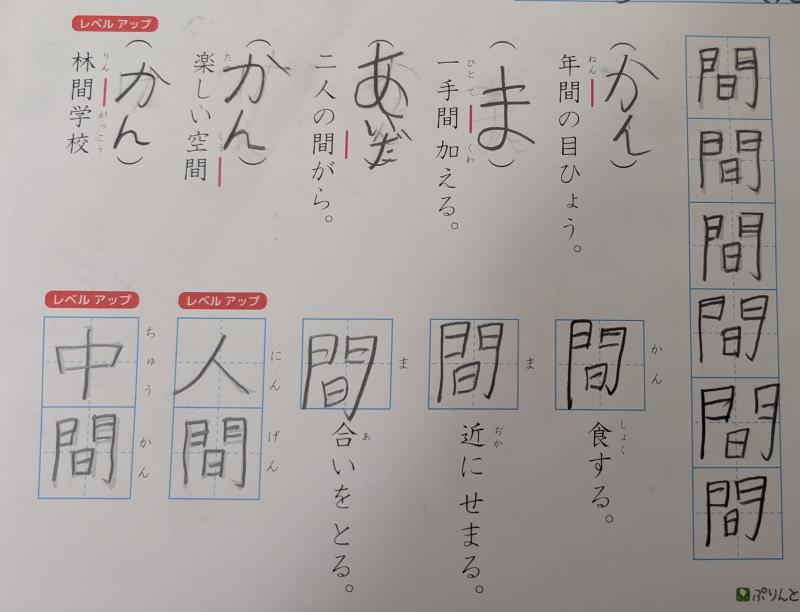 間
間
間
間
間
間
(かん)
年間の目ひょう。
ねん
(ま)
一手間加える。
ひと て くわ
(あいだ)
二人の間がら。
(かん)
楽しい空間
たの くう
レベル アップ
(かん)
林間学校
りん がっこう
間食する。
かん しょく
間近にせまる。
ま ぢか
間合いをとる。
ま あ
レベル アップ
人間
にん げん
レベル アップ
中間
ちゅう かん
ぷりんと